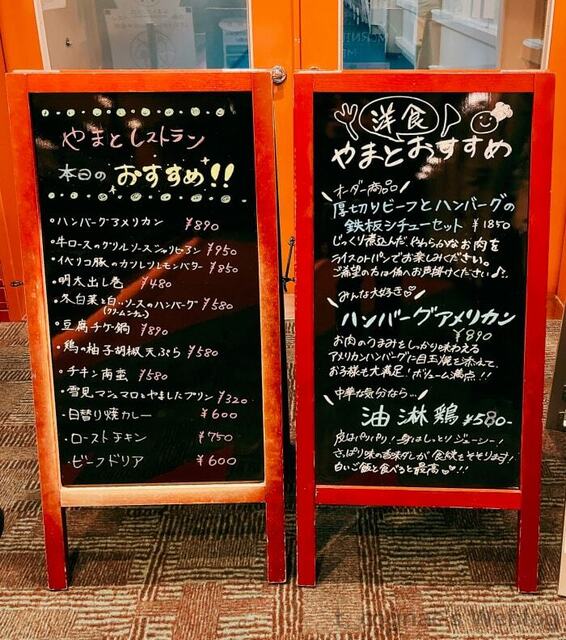 やまとレストラン
本日の おすすめ!!
・ハンバーグアメリカン ¥890
・牛ロースのグリルソース ¥950
・イベリコ豚のカツレツレモンバター ¥850
・明太出し巻 ¥480
・冬白菜と白いソースのハンバーグ ¥580
・豆腐チゲ鍋 ¥890
・鶏の柚子胡椒天ぷら ¥580
・チキン南蛮 ¥580
・雪見マシュマロとやましたプリン ¥320
・日替り焼カレー ¥600
・ローストチキン ¥750
・ビーフドリア ¥600
洋食
やまとおすすめ
オーダー商品
厚切りビーフとハンバーグの
鉄板シチューセット ¥1850
じっくり煮込んだやわらかなお肉を
ライスorパンでお楽しみください。
ご希望の方は係へお声掛けください♪
みんな大好き♡
ハンバーグアメリカン
¥890
お肉のうまみをしっかり味わえる
アメリカンハンバーグに目玉焼を添えて
お子様も大満足!ボリューム満点!!
中華な気分なら…
油淋鶏 ¥580-
皮はパリパリ!身はしっとりジューシー!
さっぱり味の香味ダレが食欲をそそります!
白いご飯と食べると最高♡!!